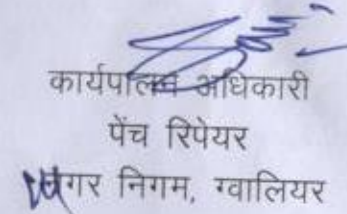 कार्यपालन अधिकारी
पेंच रिपेयर
नगर निगम, ग्वालियर